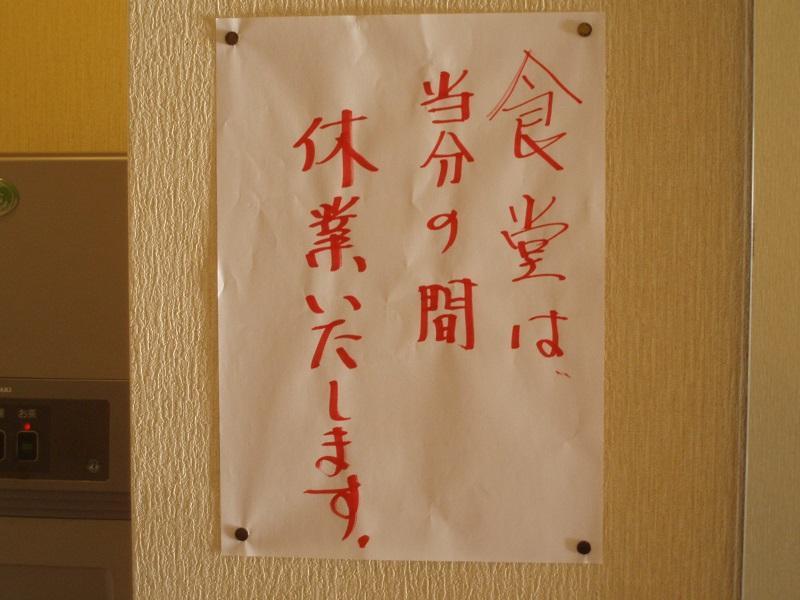 食堂は、
当分の間
休業いたします.
お茶